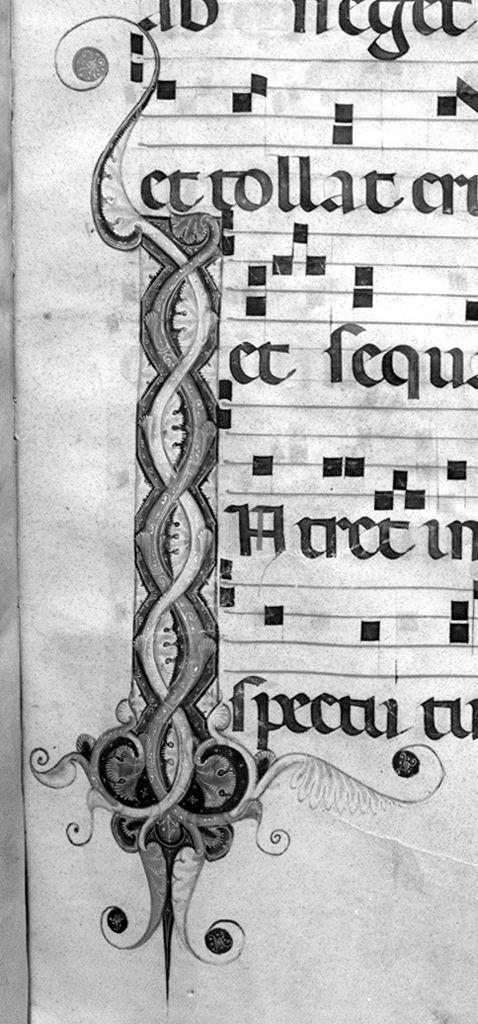 ab neget
et tollat cru
et sequa
Intret in
spectu tu